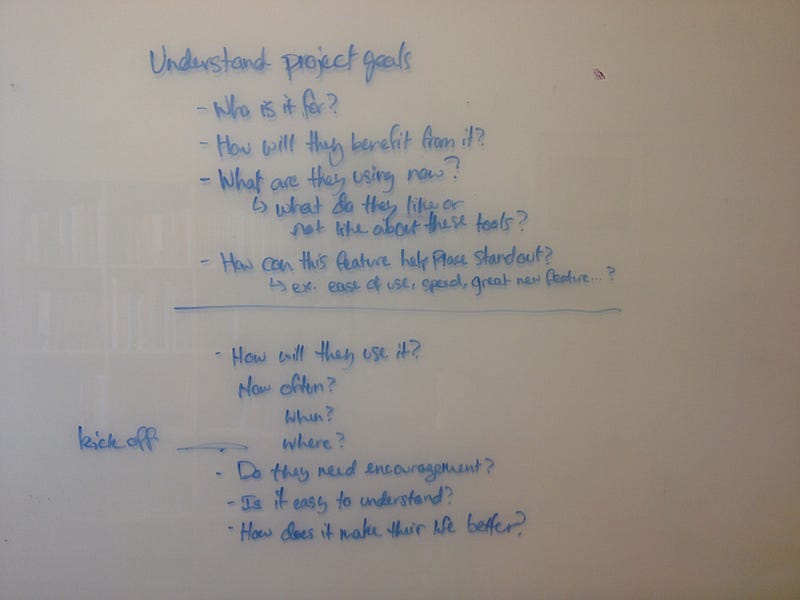 Understand project goals
- Who is it for?
- How will they benefit from it?
- What are they using now?
↳ what do they like or
not like about these tools?
- How can this feature help Place standout?
↳ ex. ease of use, speed, great new feature...?
- How will they use it?
How often?
When?
where?
kick off
- Do they need encouragement?
- Is it easy to understand?
- How does it make their life better?